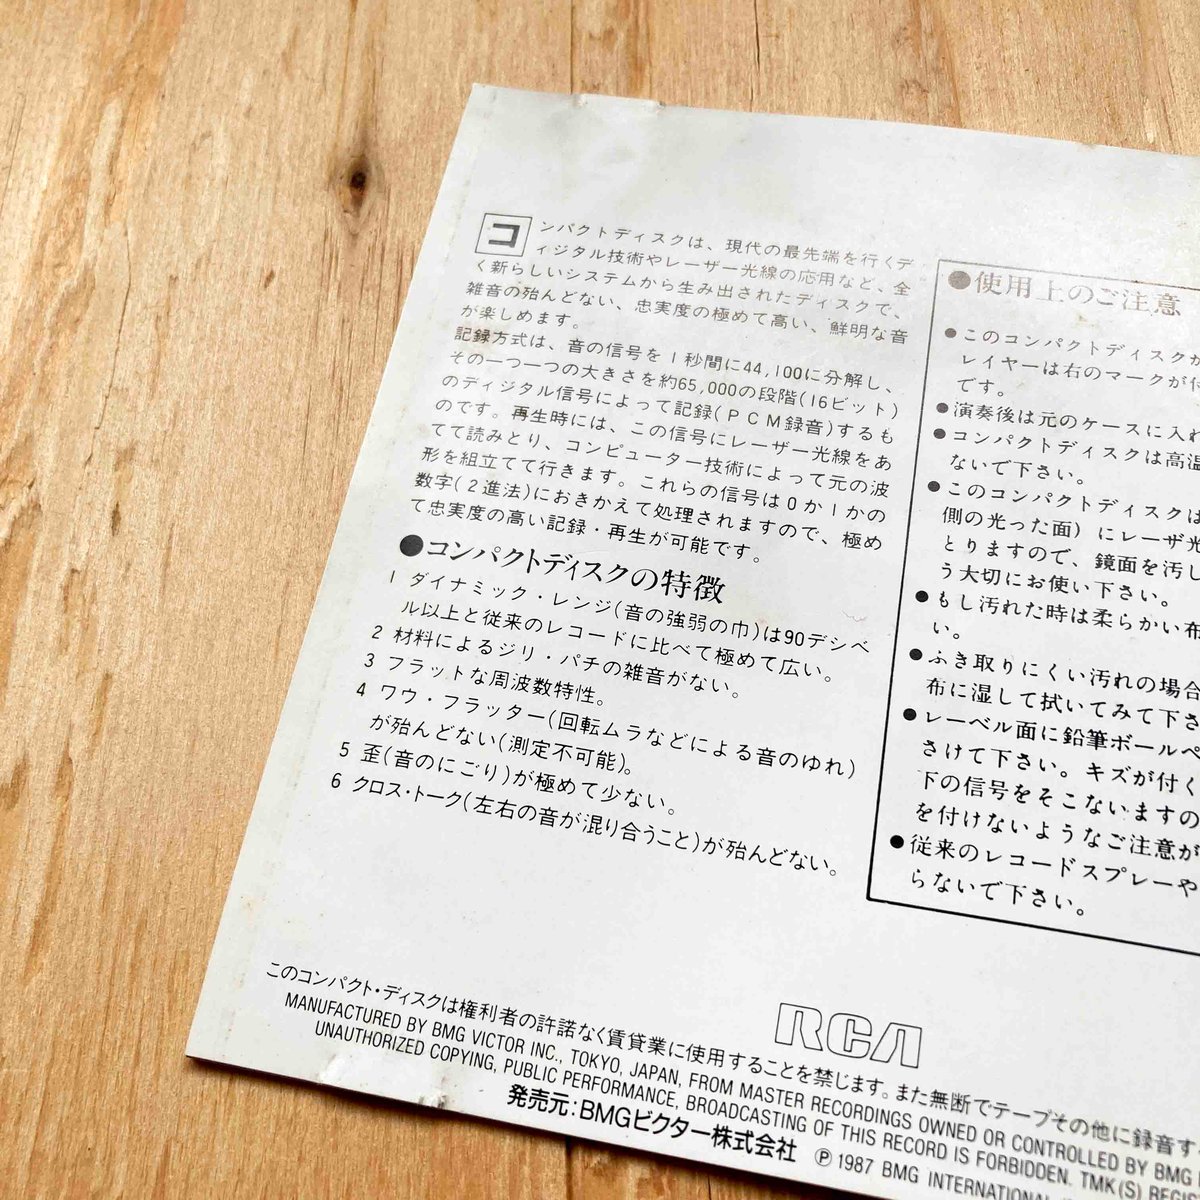 コンパクトディスクは、現代の最先端を行くデ
ィジタル技術やレーザー光線の応用など、全
く新らしいシステムから生み出されたディスクで、
雑音の殆んどない、忠実度の極めて高い、鮮明な音
が楽しめます。
記録方式は、音の信号を1秒間に44,100に分解し、
その一つ一つの大きさを約65,000の段階(16ビット)
のディジタル信号によって記録(PCM録音)するも
のです。再生時には、この信号にレーザー光線をあ
てて読みとり、コンピューター技術によって元の波
形を組立てて行きます。これらの信号は0か1かの
数字(2進法)におきかえて処理されますので、極め
て忠実度の高い記録・再生が可能です。
●コンパクトディスクの特徴
1 ダイナミック・レンジ(音の強弱の巾)は90デシベ
ル以上と従来のレコードに比べて極めて広い。
2 材料によるジリ・パチの雑音がない。
3 フラットな周波数特性。
4 ワウ・フラッター(回転ムラなどによる音のゆれ)
が殆んどない(測定不可能)。
5 歪(音のにごり)が極めて少ない。
6 クロス・トーク(左右の音が混り合うこと)が殆んどない。
●使用上のご注意
●このコンパクトディスクが
レイヤーは右のマークが付
です。
●演奏後は元のケースに入れ
●コンパクトディスクは高温
ないで下さい。
●このコンパクトディスクは
側の光った面)にレーザ光
とりますので、鏡面を汚し
う大切にお使い下さい。
●もし汚れた時は柔らかい布
い。
●ふき取りにくい汚れの場合
布に湿して拭いてみて下さ
●レーベル面に鉛筆ボールペ
さけて下さい。キズが付く
下の信号をそこないますの
を付けないようなご注意が
●従来のレコードスプレーや
らないで下さい。
RCA
このコンパクト・ディスクは権利者の許諾なく賃貸業に使用することを禁じます。また無断でテープその他に録音す
MANUFACTURED BY BMG VICTOR INC., TOKYO, JAPAN, FROM MASTER RECORDINGS OWNED OR CONTROLLED BY BMG
UNAUTHORIZED COPYING, PUBLIC PERFORMANCE, BROADCASTING OF THIS RECORD IS FORBIDDEN. TMK(S) REG
発売元:BMGビクター株式会社 ℗ 1987 BMG INTERNATIONAL